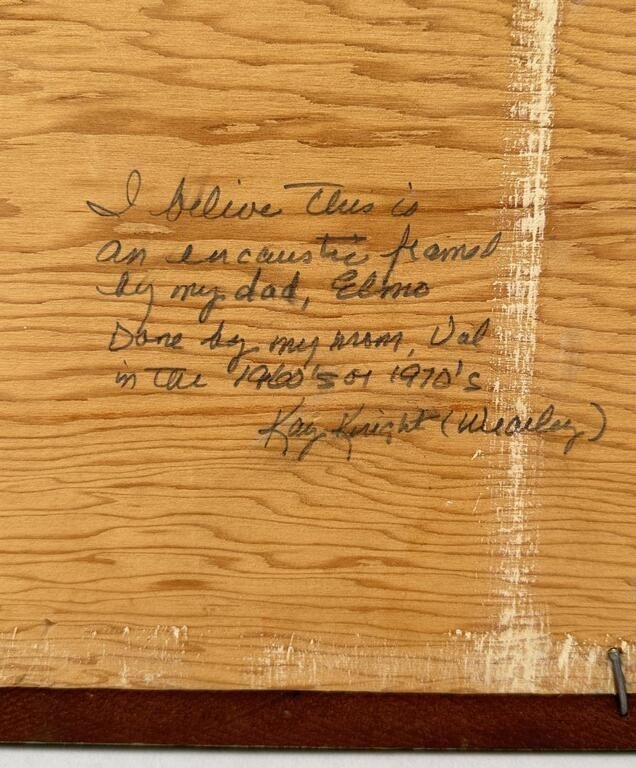 I belive This is
an encaustic framed
by my dad, Elmo
Done by my mom, Val
in the 1960's or 1970's
Kay Knight (Wearley)